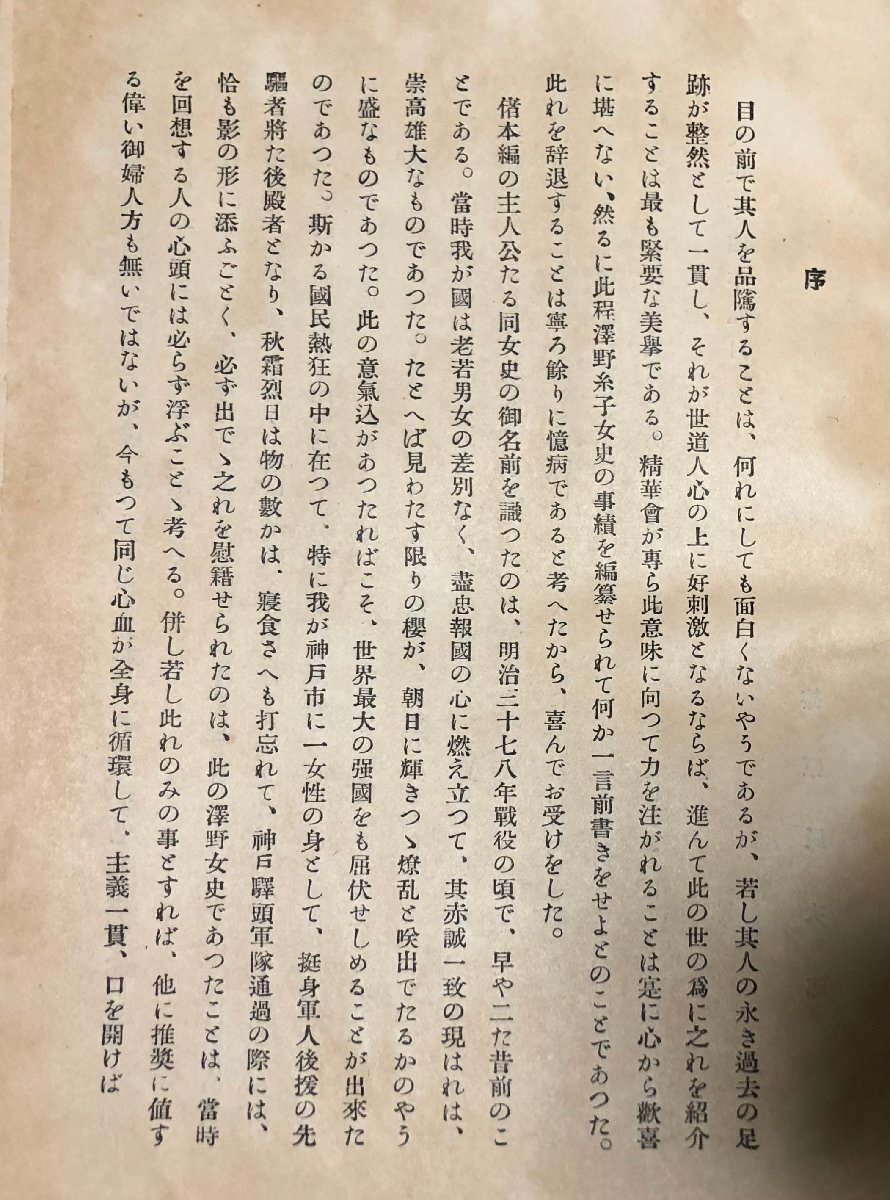 序
目の前で其人を品隲することは、何れにしても面白くないやうであるが、若し其人の永き過去の足
跡が整然として一貫し、それが世道人心の上に好刺激となるならば、進んで此の世の爲に之れを紹介
することは最も緊要な美擧である。精華會が專ら此意味に向つて力を注がれることは寔に心から歡喜
に堪へない、然るに此程澤野糸子女史の事績を編纂せられて何か一言前書きをせよとのことであつた。
此れを辞退することは寧ろ餘りに憶病であると考へたから、喜んでお受けをした。
偖本編の主人公たる同女史の御名前を識つたのは、明治三十七八年戰役の頃で、早や二た昔前のこ
とである。當時我が國は老若男女の差別なく、盡忠報國の心に燃え立つて、其赤誠一致の現はれは、
崇高雄大なものであつた。たとへば見わたす限りの櫻が、朝日に輝きつゝ燎乱と咲出でたるかのやう
に盛なものであつた。此の意氣込があつたればこそ、世界最大の强國をも屈伏せしめることが出來た
のであつた。斯かる國民熱狂の中に在つて、特に我が神戸市に一女性の身として、挺身軍人後援の先
驅者將た後殿者となり、秋霜烈日は物の數かは、寢食さへも打忘れて、神戸驛頭軍隊通過の際には、
恰も影の形に添ふごとく、必ず出でゝ之れを慰籍せられたのは、此の澤野女史であつたことは、當時
を回想する人の心頭には必らず浮ぶことゝ考へる。併し若し此れのみの事とすれば、他に推奬に値す
る偉い御婦人方も無いではないが、今もつて同じ心血が全身に循環して、主義一貫、口を開けば